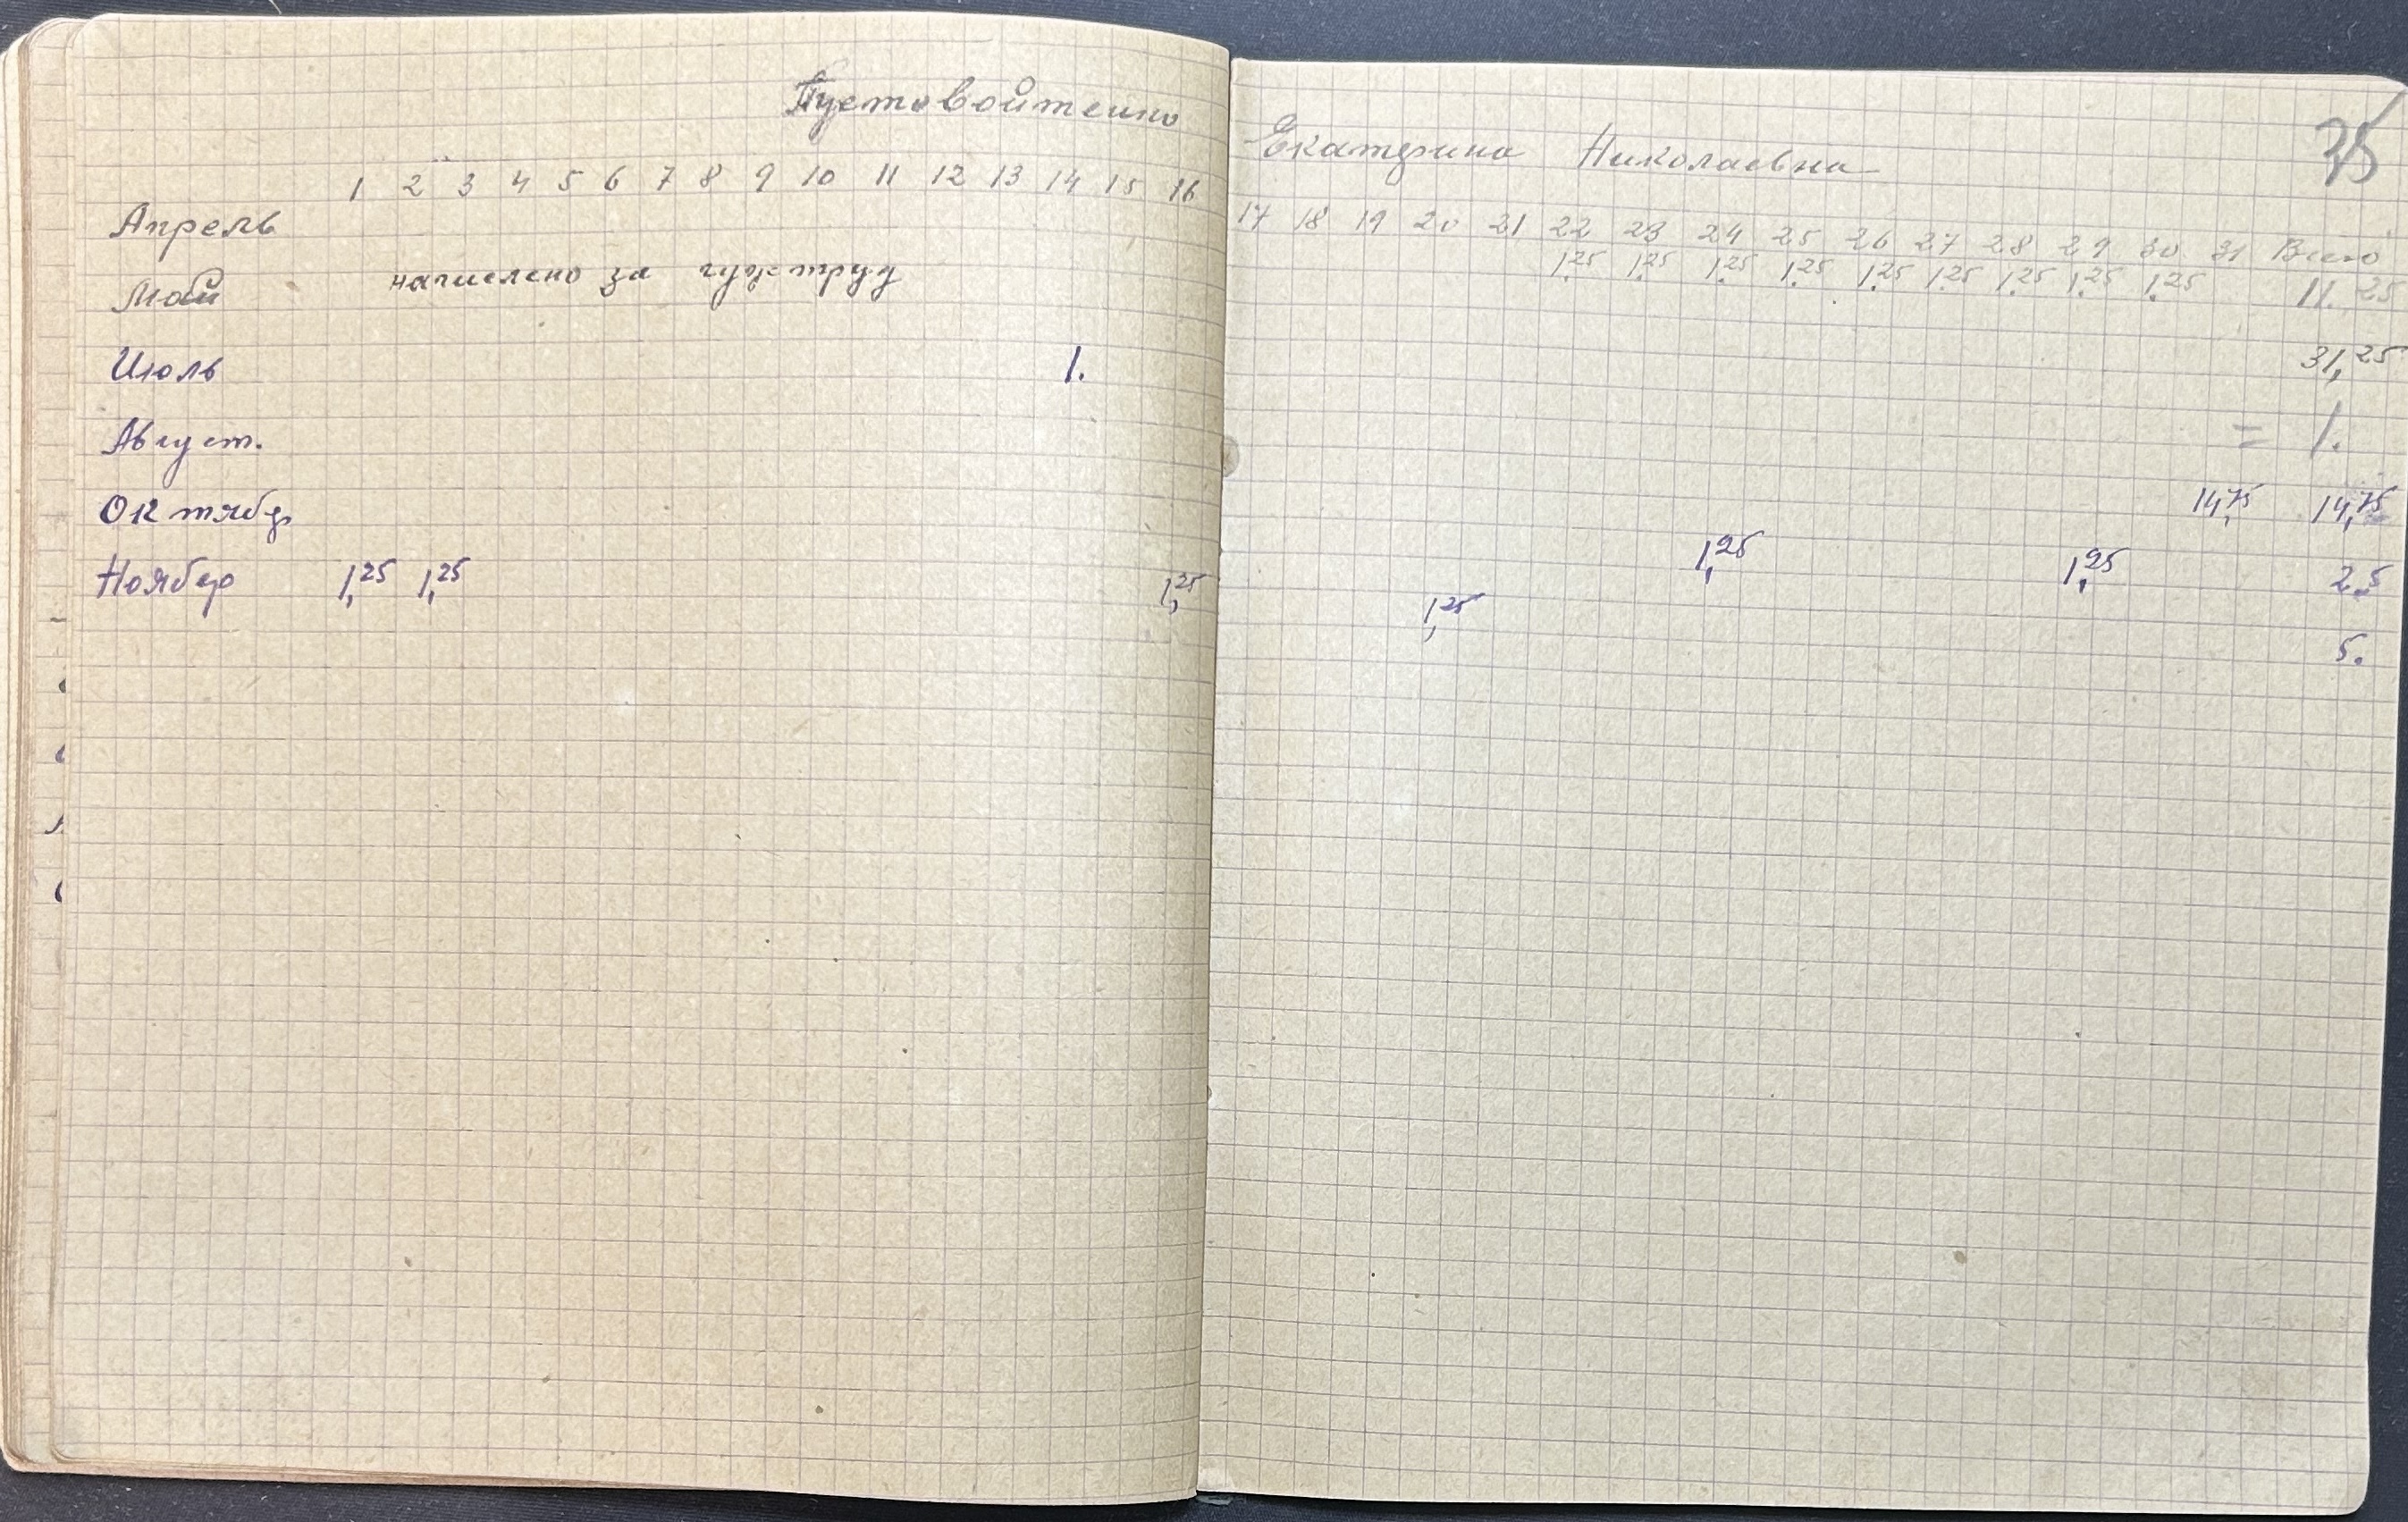 Пустовойтенко Екатерина Николаевна 35
1 2 3 4 5 6 7 8 9 10 11 12 13 14 15 16 17 18 19 20 21 22 23 24 25 26 27 28 29 30 31 Всего
Апрель 1.25 1.25 1.25 1.25 1.25 1.25 1.25 1.25 1.25 11.25
Май начислено за гужтруд 31,25
Июль 1. = 1.
Август. 14,75 14,75
Октябр 1,25 1,25 2.5
Ноябр 1,25 1,25 1,25 1,25 5.